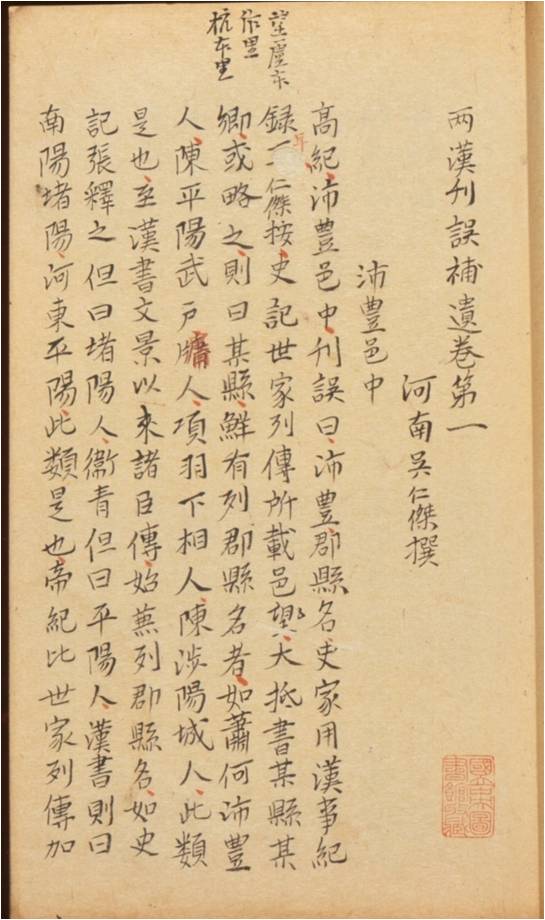 望盧本
作里
杭本里
两漢刋誤補遺卷第一
河南吳仁傑撰
沛豐邑中
高紀沛豐邑中刋誤曰沛豐郡縣名史家用漢事紀
録耳仁傑按史記世家列傳所載邑望大抵書某縣某
卿或略之則曰某縣鮮有列郡縣名者如蕭何沛豐
人陳平陽武戶牖人項羽下相人陳渉陽城人此類
是也至漢書文景以來諸臣傳始蕪列郡縣名如史
記張釋之但曰堵陽人衞青但曰平陽人漢書則曰
南陽堵陽河東平陽此類是也帝紀比世家列傳加